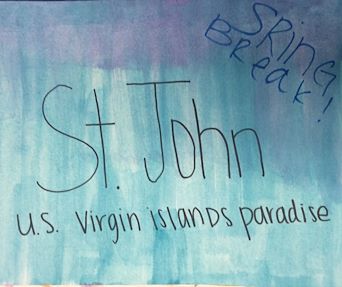 SPRING
BReak!
St. John
U.S. Virgin islands paradise